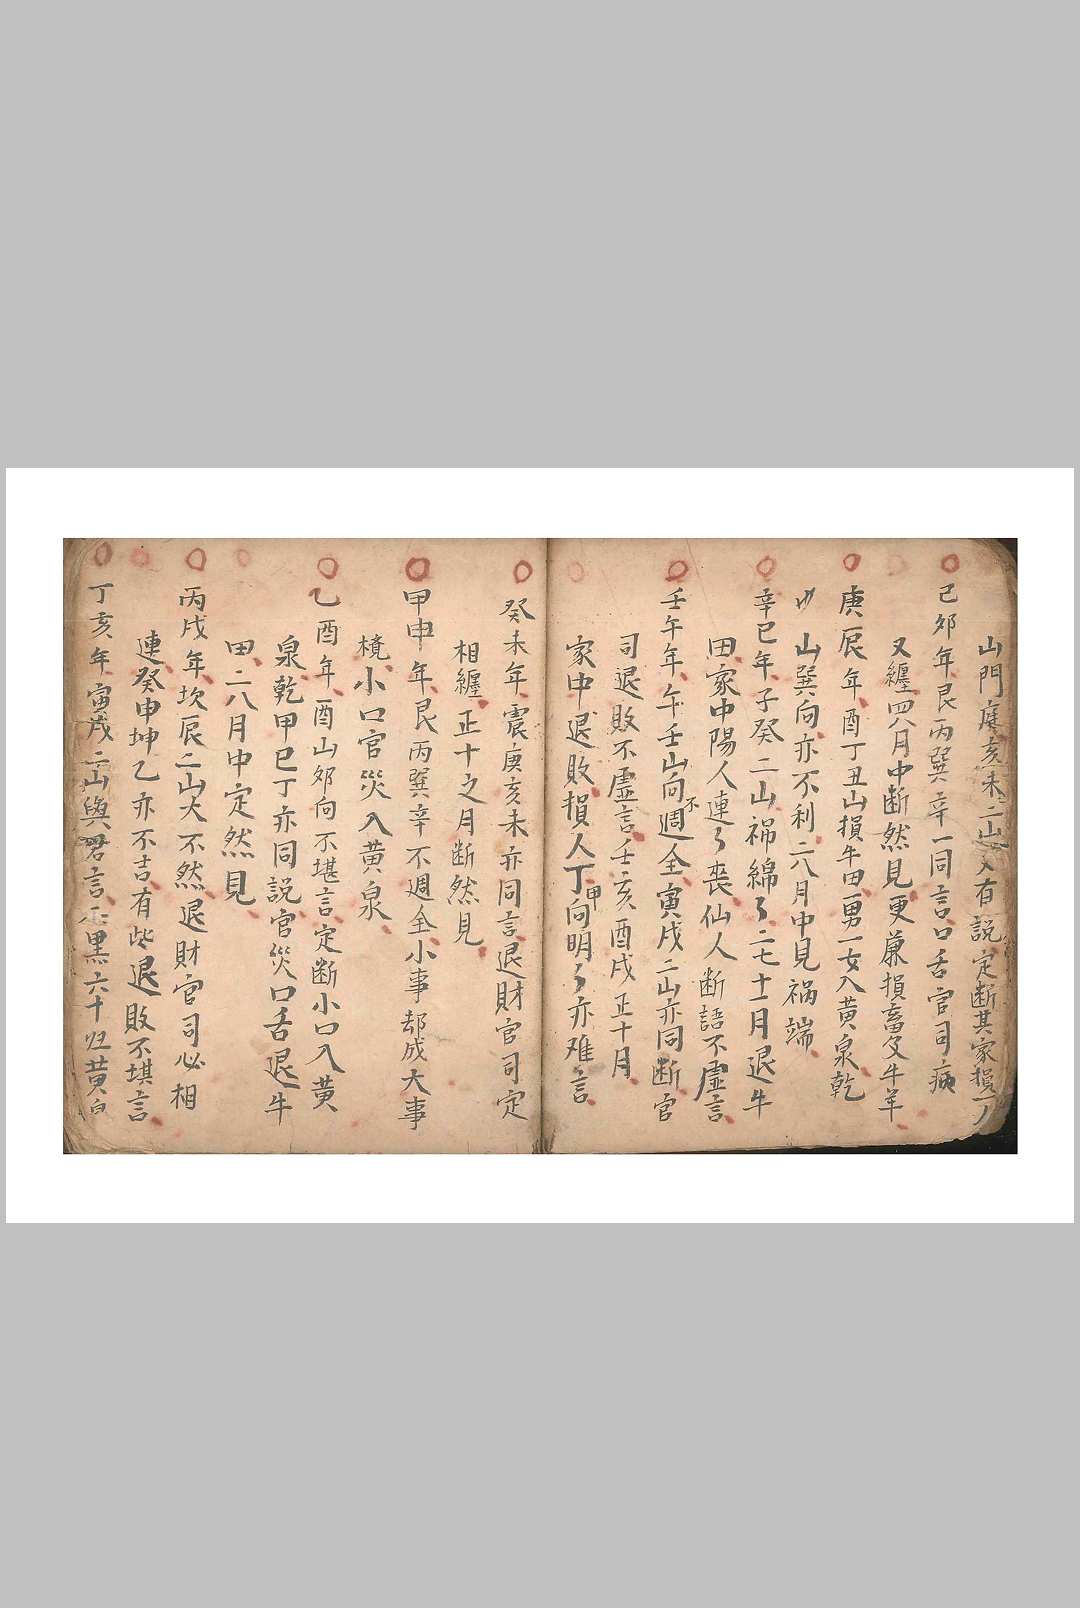 山門庭亥未二山又有説定断其家損一人
己夘年艮丙巽辛一同言口舌官司病
又纏四八月中断然見更兼損畜及牛羊
庚辰年酉丁丑山損牛田男一女入黄泉乾
山巽向亦不利二八月中見祸端
辛巳年子癸二山禍綿々二七十一月退牛
田家中陽人連々喪仙人断語不虚言
壬午年午壬山向不週全寅戌二山亦同断官
司退敗不虚言壬亥酉戌正十月
家中退敗損人丁甲向明々亦难言
癸未年震庚亥未亦同言退財官司定
相纏正十之月断然見
甲申年艮丙巽辛不週全小事却成大事
櫈小口官災入黄泉
乙酉年酉山夘向不堪言定断小口入黄
泉乾甲巳丁亦同説官災口舌退牛
田二八月中定然見
丙戌年坎辰二山大不然退財官司必相
連癸申坤乙亦不吉有些退敗不堪言
丁亥年寅戌二山與君言黑六十归黄白